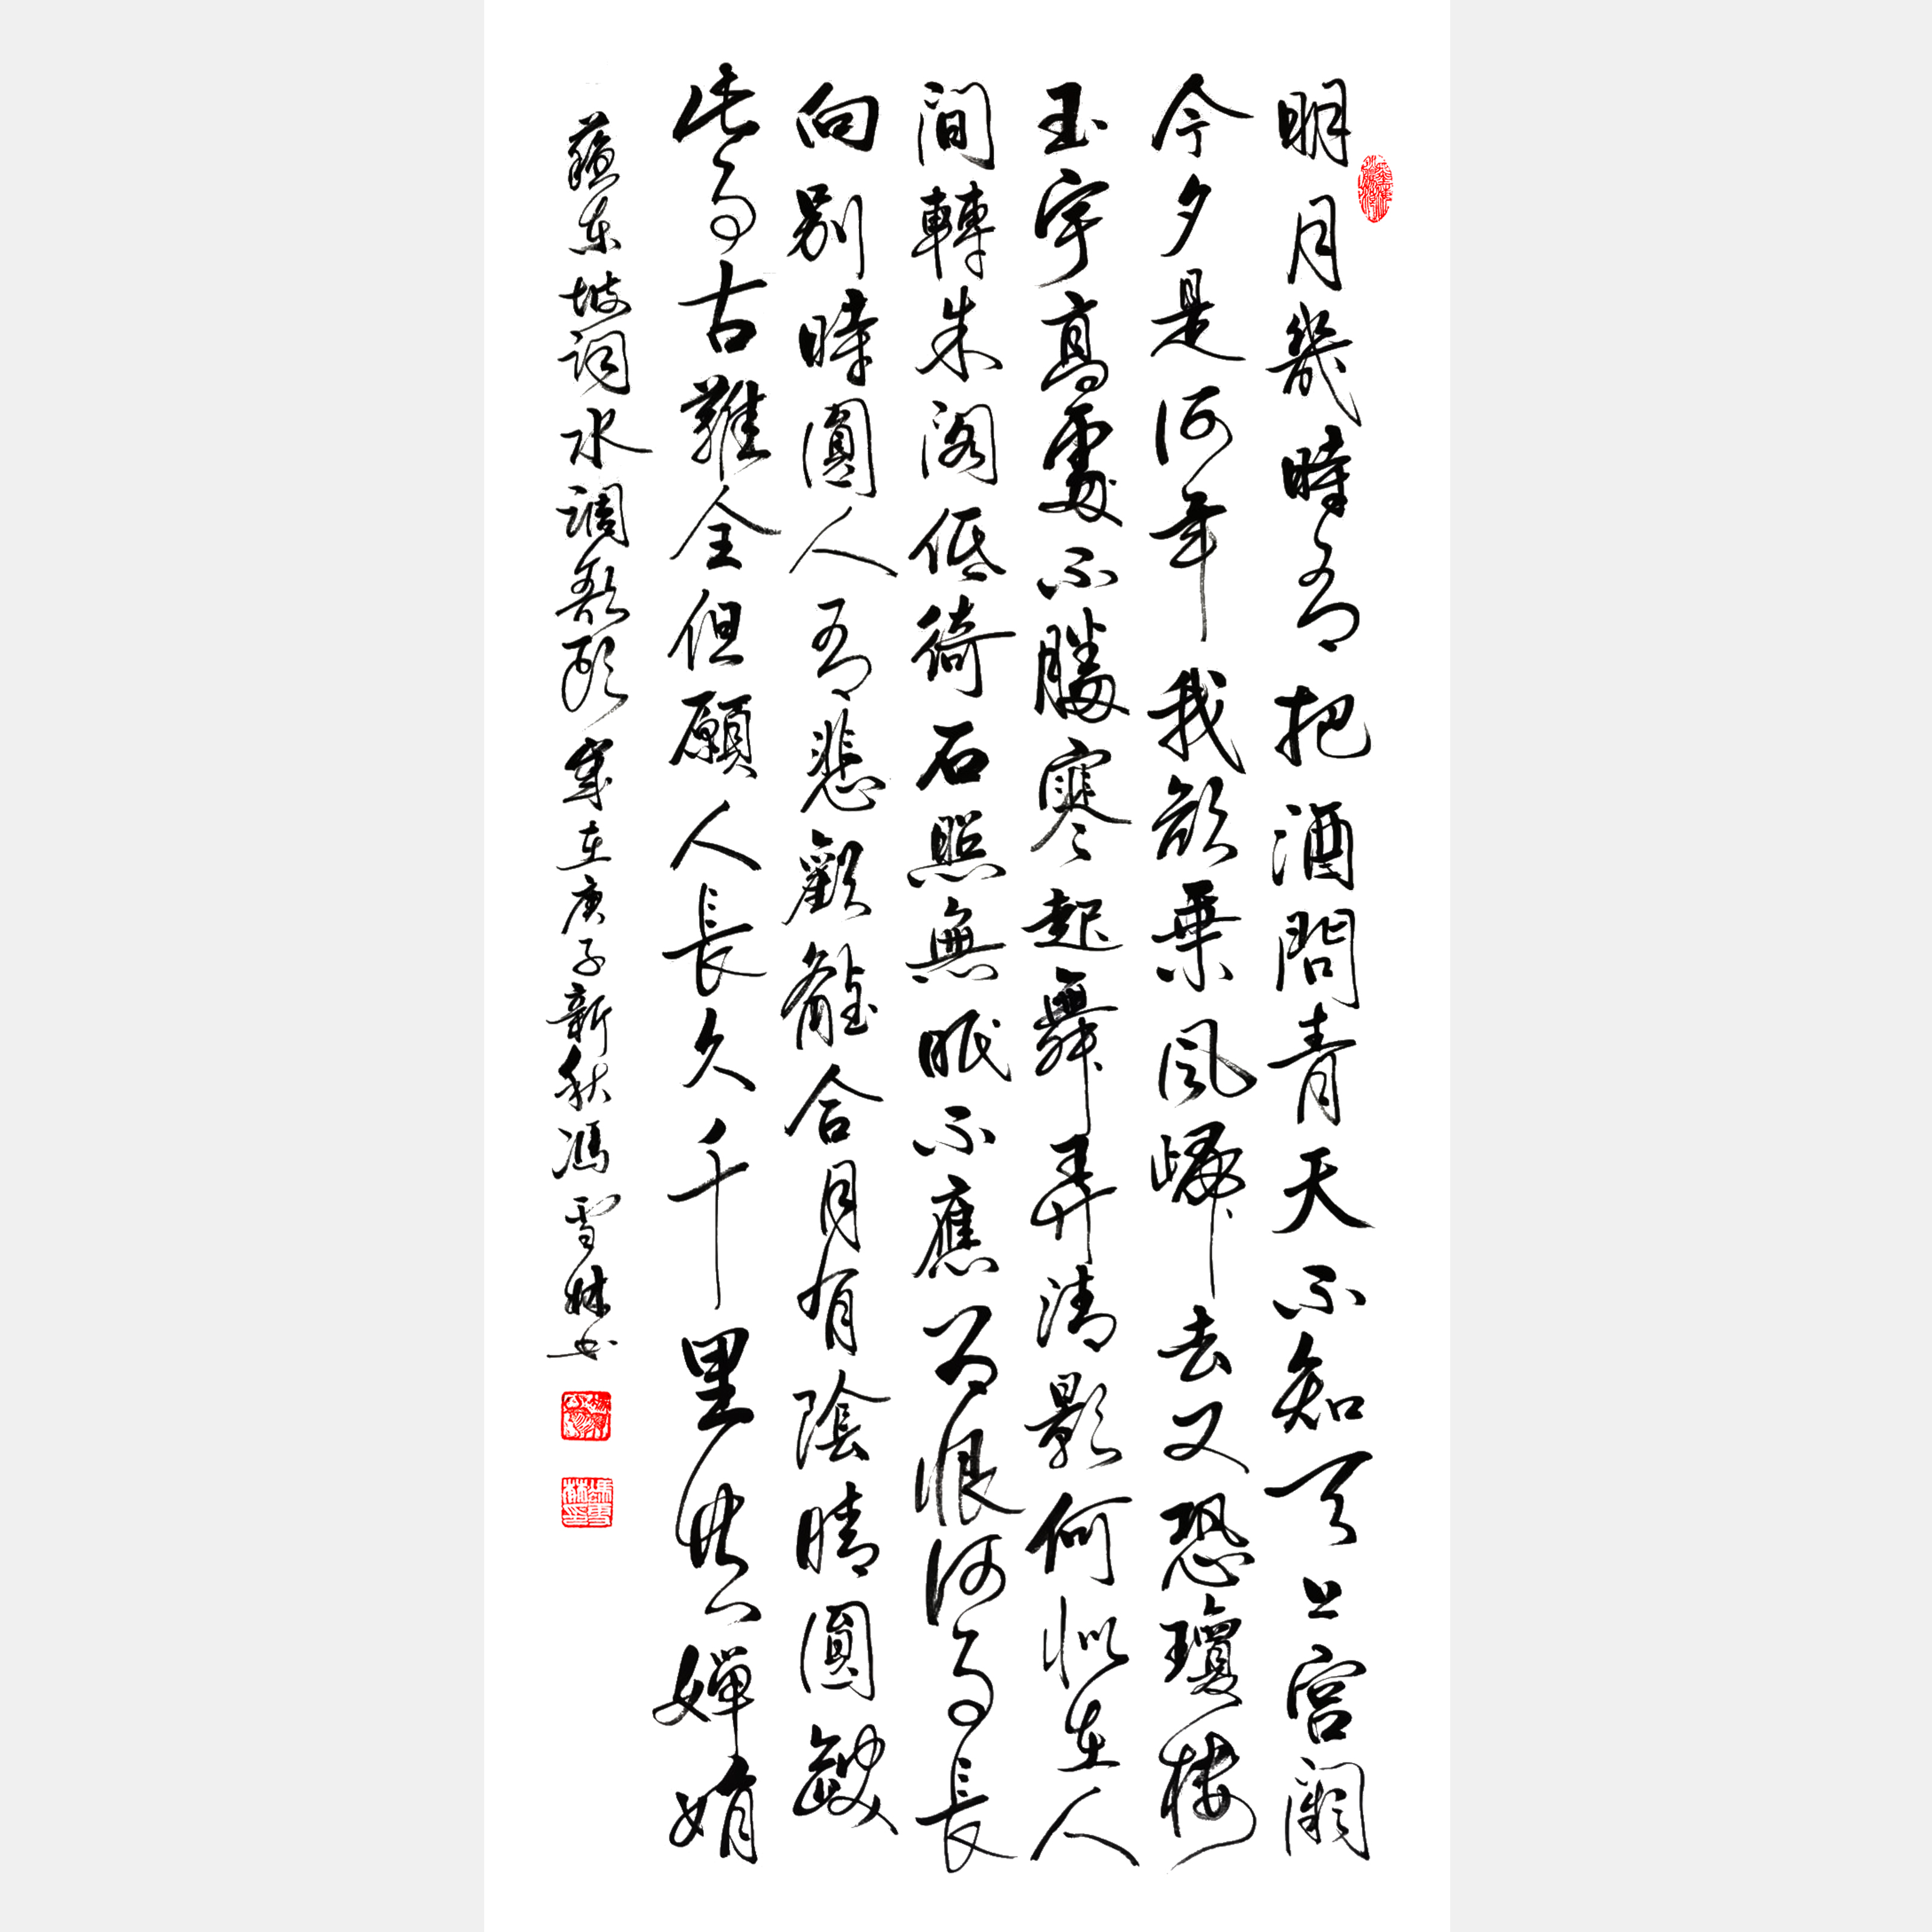 明月幾時有把酒問青天不知天上宮闕
今夕是何年我欲乘風歸去又恐瓊樓
玉宇高處不勝寒起舞弄清影何似在人
間轉朱閣低綺石照無眠不應有恨何事長
向別時圓人有悲歡離合月有陰晴圓缺
此事古難全但願人長久千里共嬋娟
蘇東坡詞水調歌頭歲在庚子新秋馮雪林書
馮雪林印